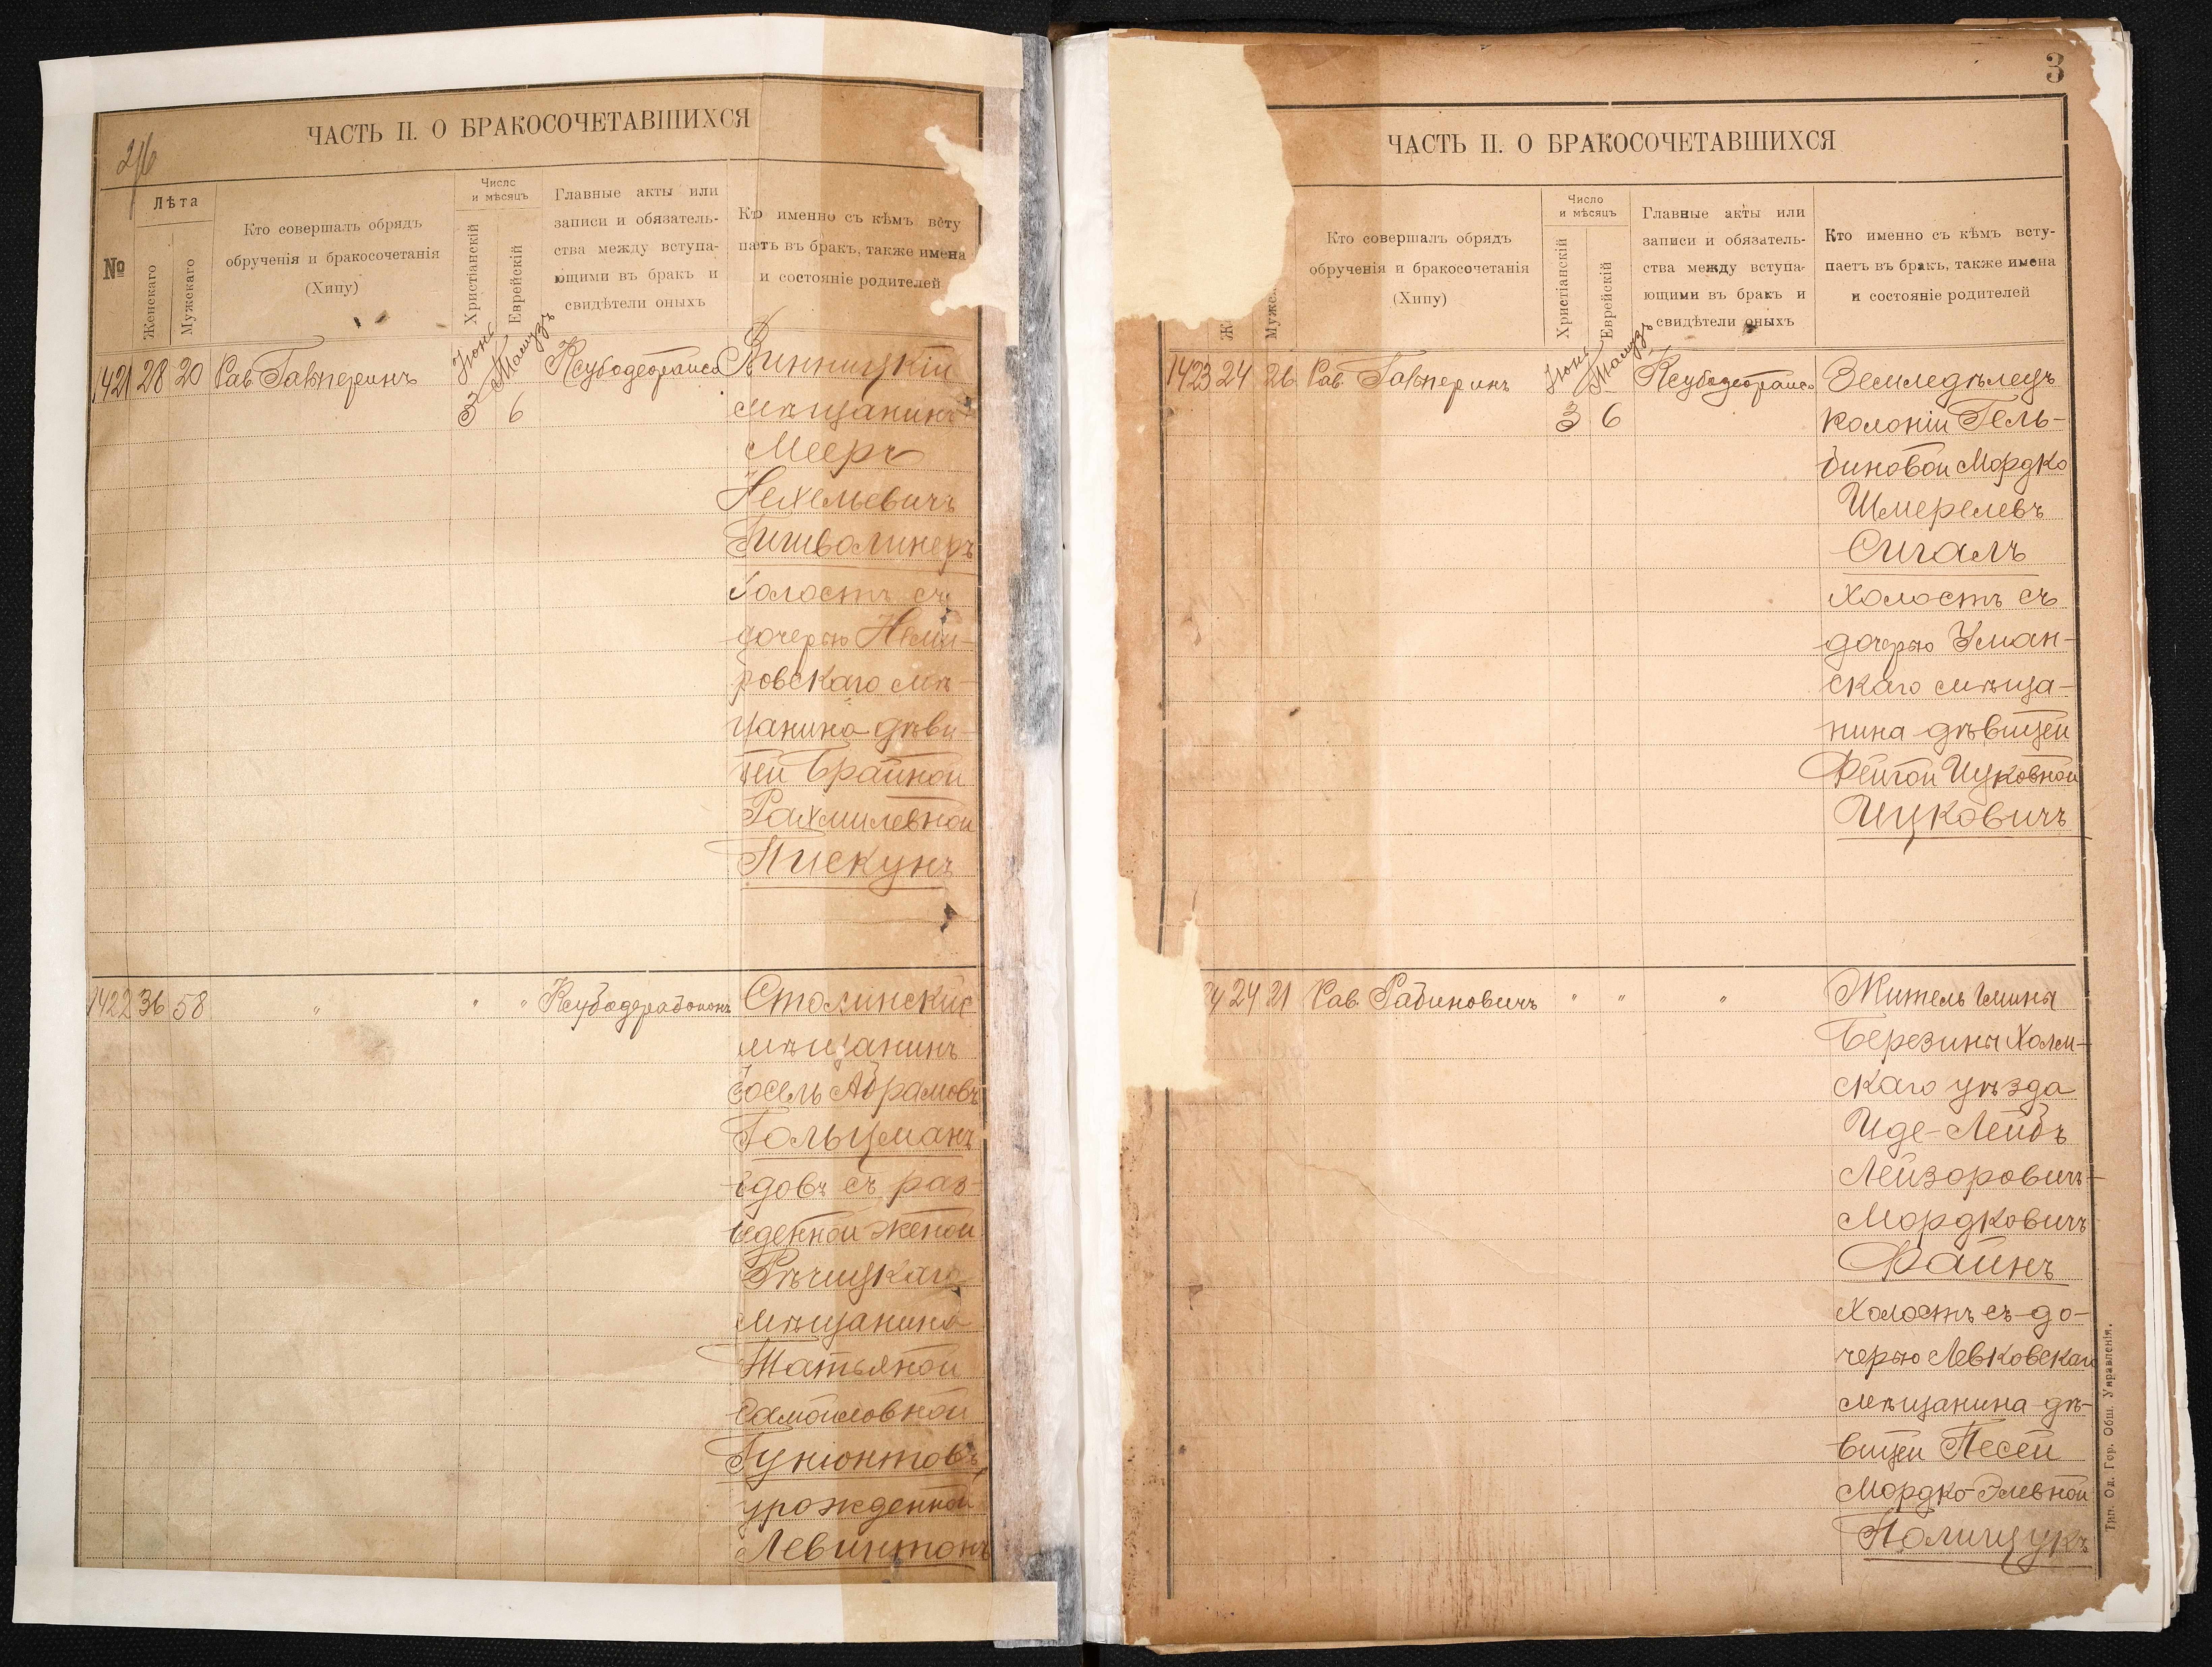 ЧАСТЬ II. О БРАКОСОЧЕТАВШИХСЯ
№
Лѣта
Женскаго
Мужескаго
Кто совершалъ обрядъ
обрученія и бракосочетанія
(Хипу)
Число
и мѣсяцъ
Христіанскій
Еврейскій
Главные акты или
записи и обязатель-
ства между вступа-
ющими въ бракъ и
свидѣтели оныхъ
Кто именно съ кѣмъ всту
паетъ въ бракъ, также имена
и состояніе родителей
1421 28 20 Рав. Гальперинъ Іюнь 3 Тамузъ 6 Винницкій
мѣщанинъ
Мееръ
Нехемьевичъ
холостъ съ
дочерью Неми-
ровскаго мѣ-
щанина дѣви-
цей Брайной
Рахмилевной
Пискунъ
1422 36 58 " " " Столинскій
мѣщанинъ
Іосель Абрамовъ
Гольцманъ
вдовъ съ раз-
веденной женой
Рѣчицкаго
мѣщанина
Татьяной
Самойловной
урожденной
Левинтонъ
3
ЧАСТЬ II. О БРАКОСОЧЕТАВШИХСЯ
Кто совершалъ обрядъ
обрученія и бракосочетанія
(Хипу)
Число
и мѣсяцъ
Христіанскій
Еврейскій
Главные акты или
записи и обязатель-
ства между вступа-
ющими въ бракъ и
свидѣтели оныхъ
Кто именно съ кѣмъ всту-
паетъ въ бракъ, также имена
и состояніе родителей
1423 24 26 Рав. Гальперинъ Іюнь 3 Тамузъ 6 Земледѣлецъ
колоніи Гель-
биновой Мордко
Шмерелевъ
Сигалъ
холостъ съ
дочерью Уман-
скаго мѣща-
нина дѣвицей
Фейгой Ицковной
Ицковичъ
4 24 21 Рав. Рабиновичъ " " " Житель гмины
Березины Холм-
скаго уѣзда
Иде-Лейбъ
Лейзоровичъ-
Мордковичъ
Файнъ
холостъ съ до-
черью Левковскаго
мѣщанина дѣ-
вицей Песей
Мордко-Элевной
Полищукъ
Тип. Од. Гор. Общ. Управленія.